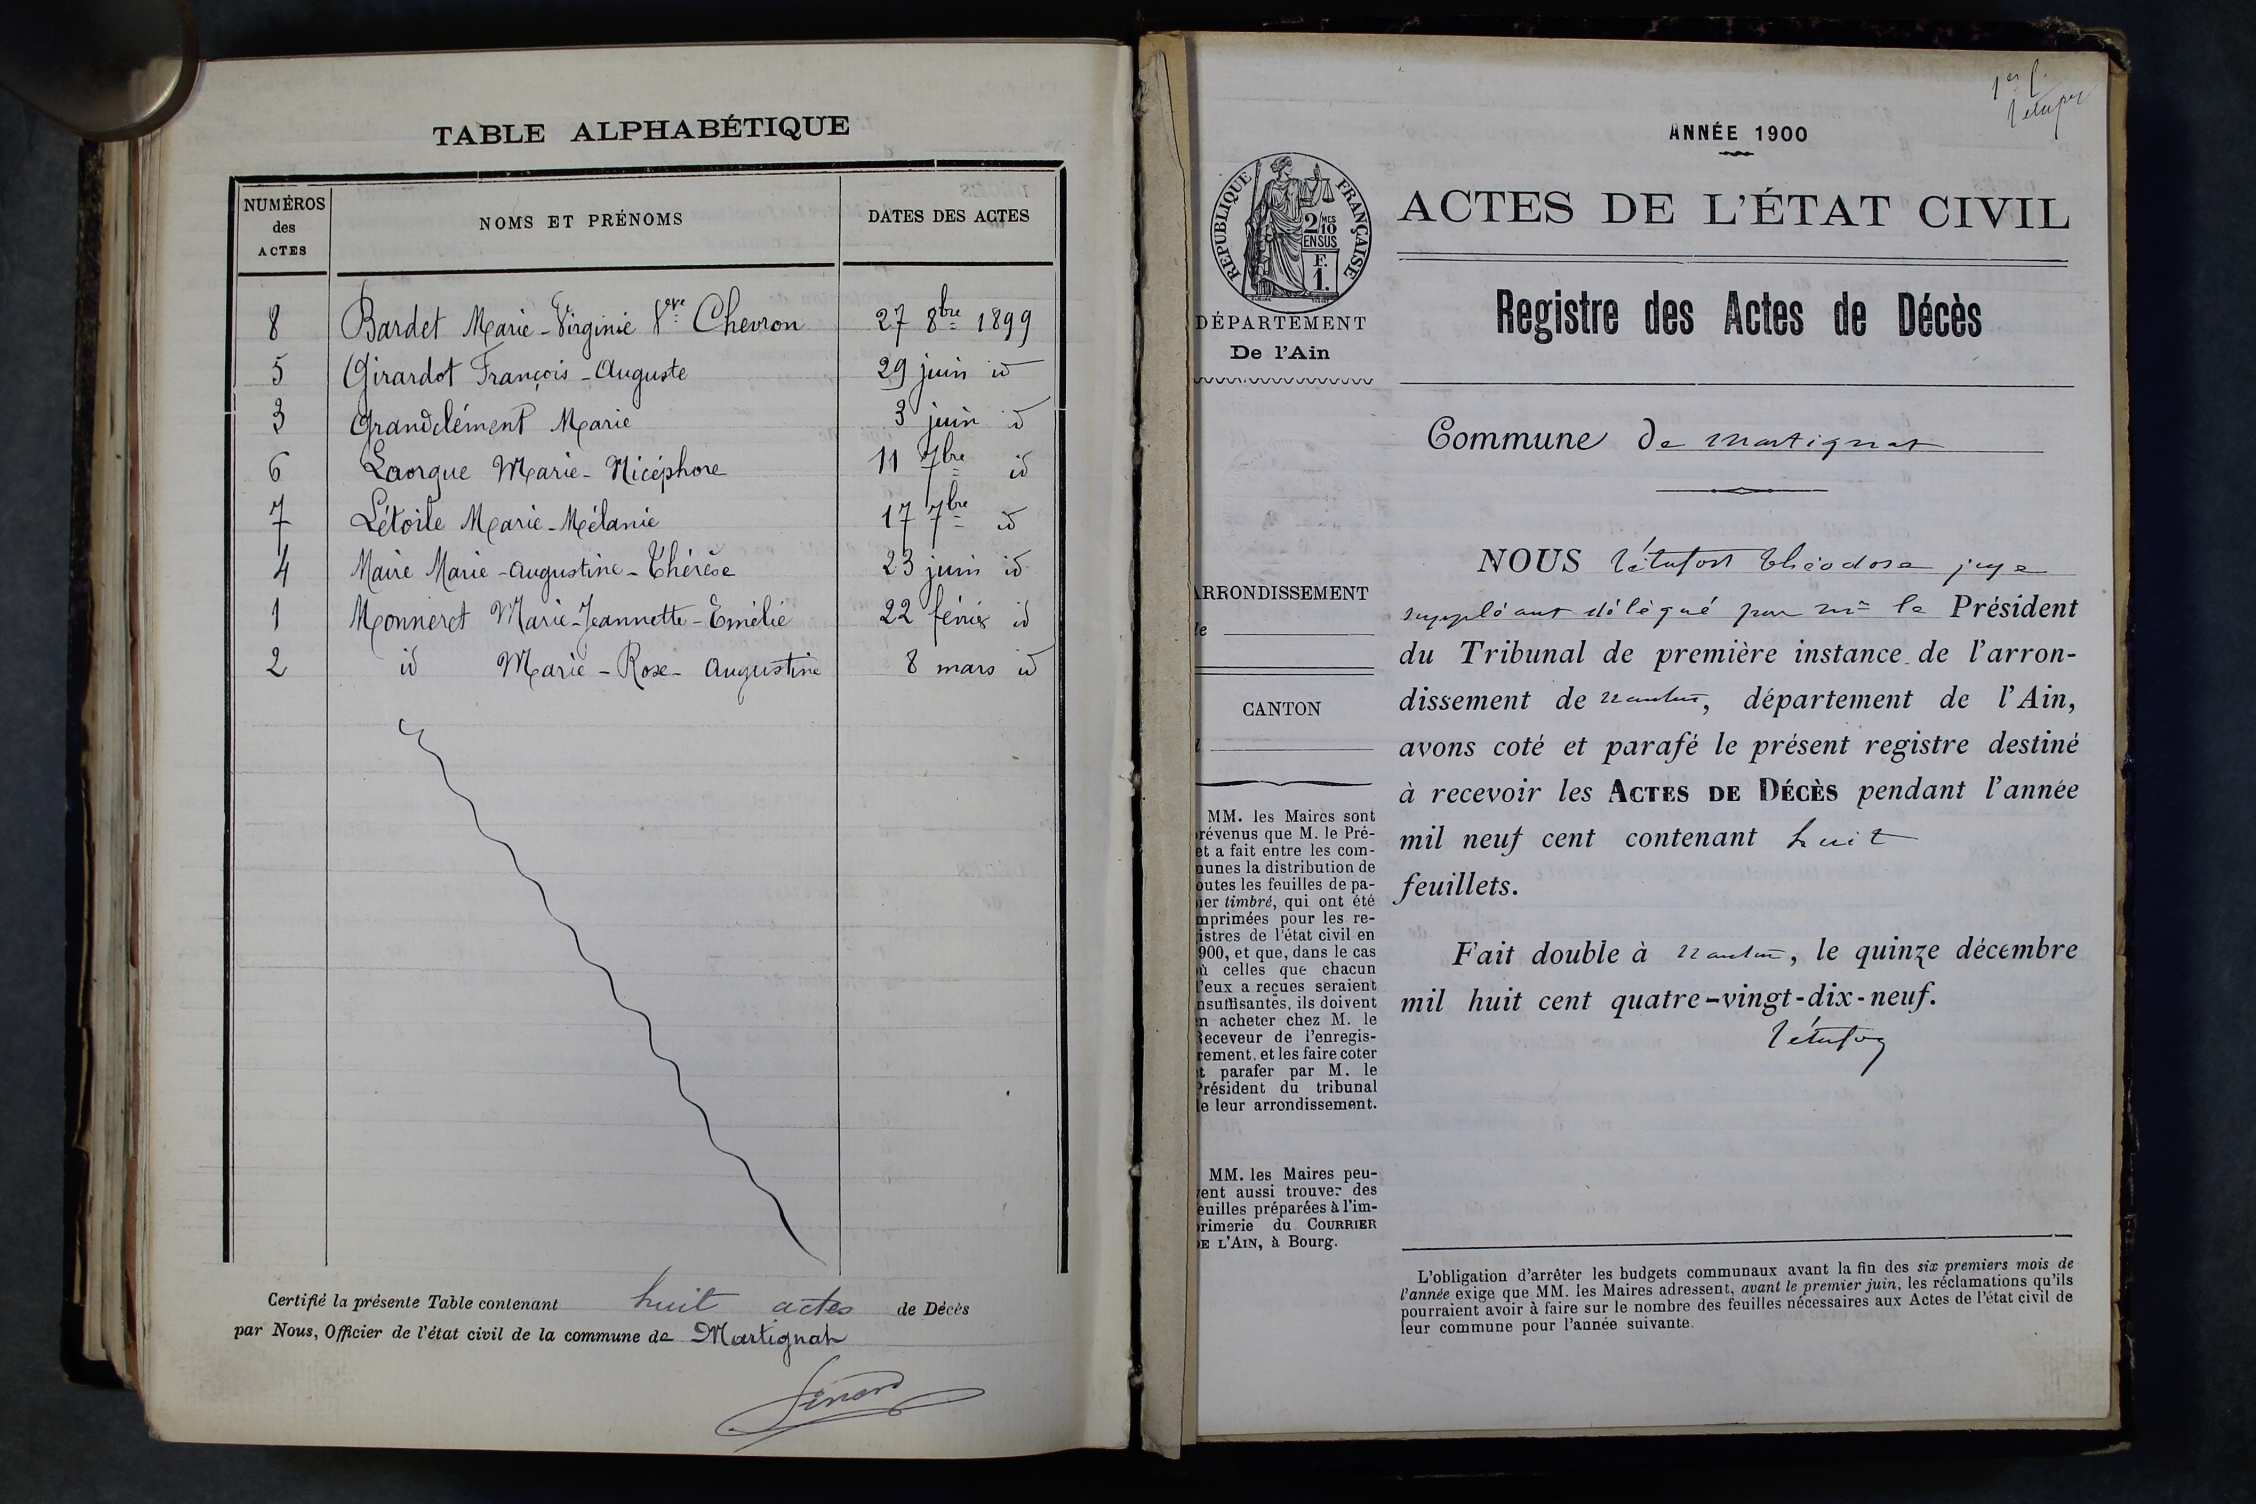 TABLE ALPHABÉTIQUE
NUMÉROS des ACTES
NOMS ET PRÉNOMS
DATES DES ACTES
8 Bardet Marie-Virginie Vve Chevron 27 8bre 1899
5 Girardot François-Auguste 29 juin id
3 Grandclément Marie 3 juin id
6 Laorgue Marie-Nicéphore 11 7bre id
7 Létoile Marie-Mélanie 17 7bre id
4 Maire Marie-Augustine-Thérèse 23 juin id
1 Monneret Marie-Jeannette-Emélie 22 février id
2 id Marie-Rose-Augustine 8 mars id
Certifié la présente Table contenant huit actes de Décès
par Nous, Officier de l'état civil de la commune de Martignat
1er f.
ANNÉE 1900
RÉPUBLIQUE FRANÇAISE
2/10 MES
EN SUS
F.
1.
DÉPARTEMENT
De l'Ain
ARRONDISSEMENT
CANTON
MM. les Maires sont
révenus que M. le Pré-
et a fait entre les com-
unes la distribution de
outes les feuilles de pa-
ier timbré, qui ont été
mprimées pour les re-
istres de l'état civil en
900, et que, dans le cas
ù celles que chacun
'eux a reçues seraient
nsuffisantes, ils doivent
n acheter chez M. le
eceveur de l'enregis-
rement, et les faire coter
t parafer par M. le
Président du tribunal
e leur arrondissement.
MM. les Maires peu-
ent aussi trouver des
euilles préparées à l'im-
rimerie du COURRIER
DE L'AIN, à Bourg.
ACTES DE L'ÉTAT CIVIL
Registre des Actes de Décès
Commune de Martignat
NOUS Théodore juge
suppléant délégué par Mr le Président
du Tribunal de première instance de l'arron-
dissement de Nantua, département de l'Ain,
avons coté et parafé le présent registre destiné
à recevoir les ACTES DE DÉCÈS pendant l'année
mil neuf cent contenant huit
feuillets.
Fait double à Nantua, le quinze décembre
mil huit cent quatre-vingt-dix-neuf.
L'obligation d'arrêter les budgets communaux avant la fin des six premiers mois de
l'année exige que MM. les Maires adressent, avant le premier juin, les réclamations qu'ils
pourraient avoir à faire sur le nombre des feuilles nécessaires aux Actes de l'état civil de
leur commune pour l'année suivante.